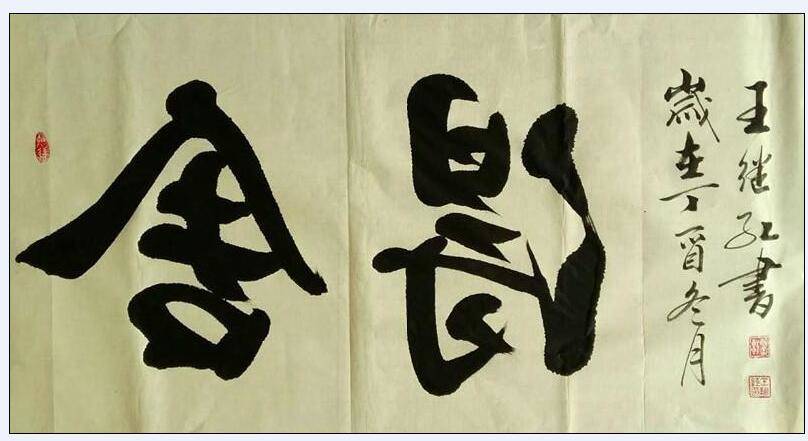 舍得
歲在丁酉冬月
王继红書